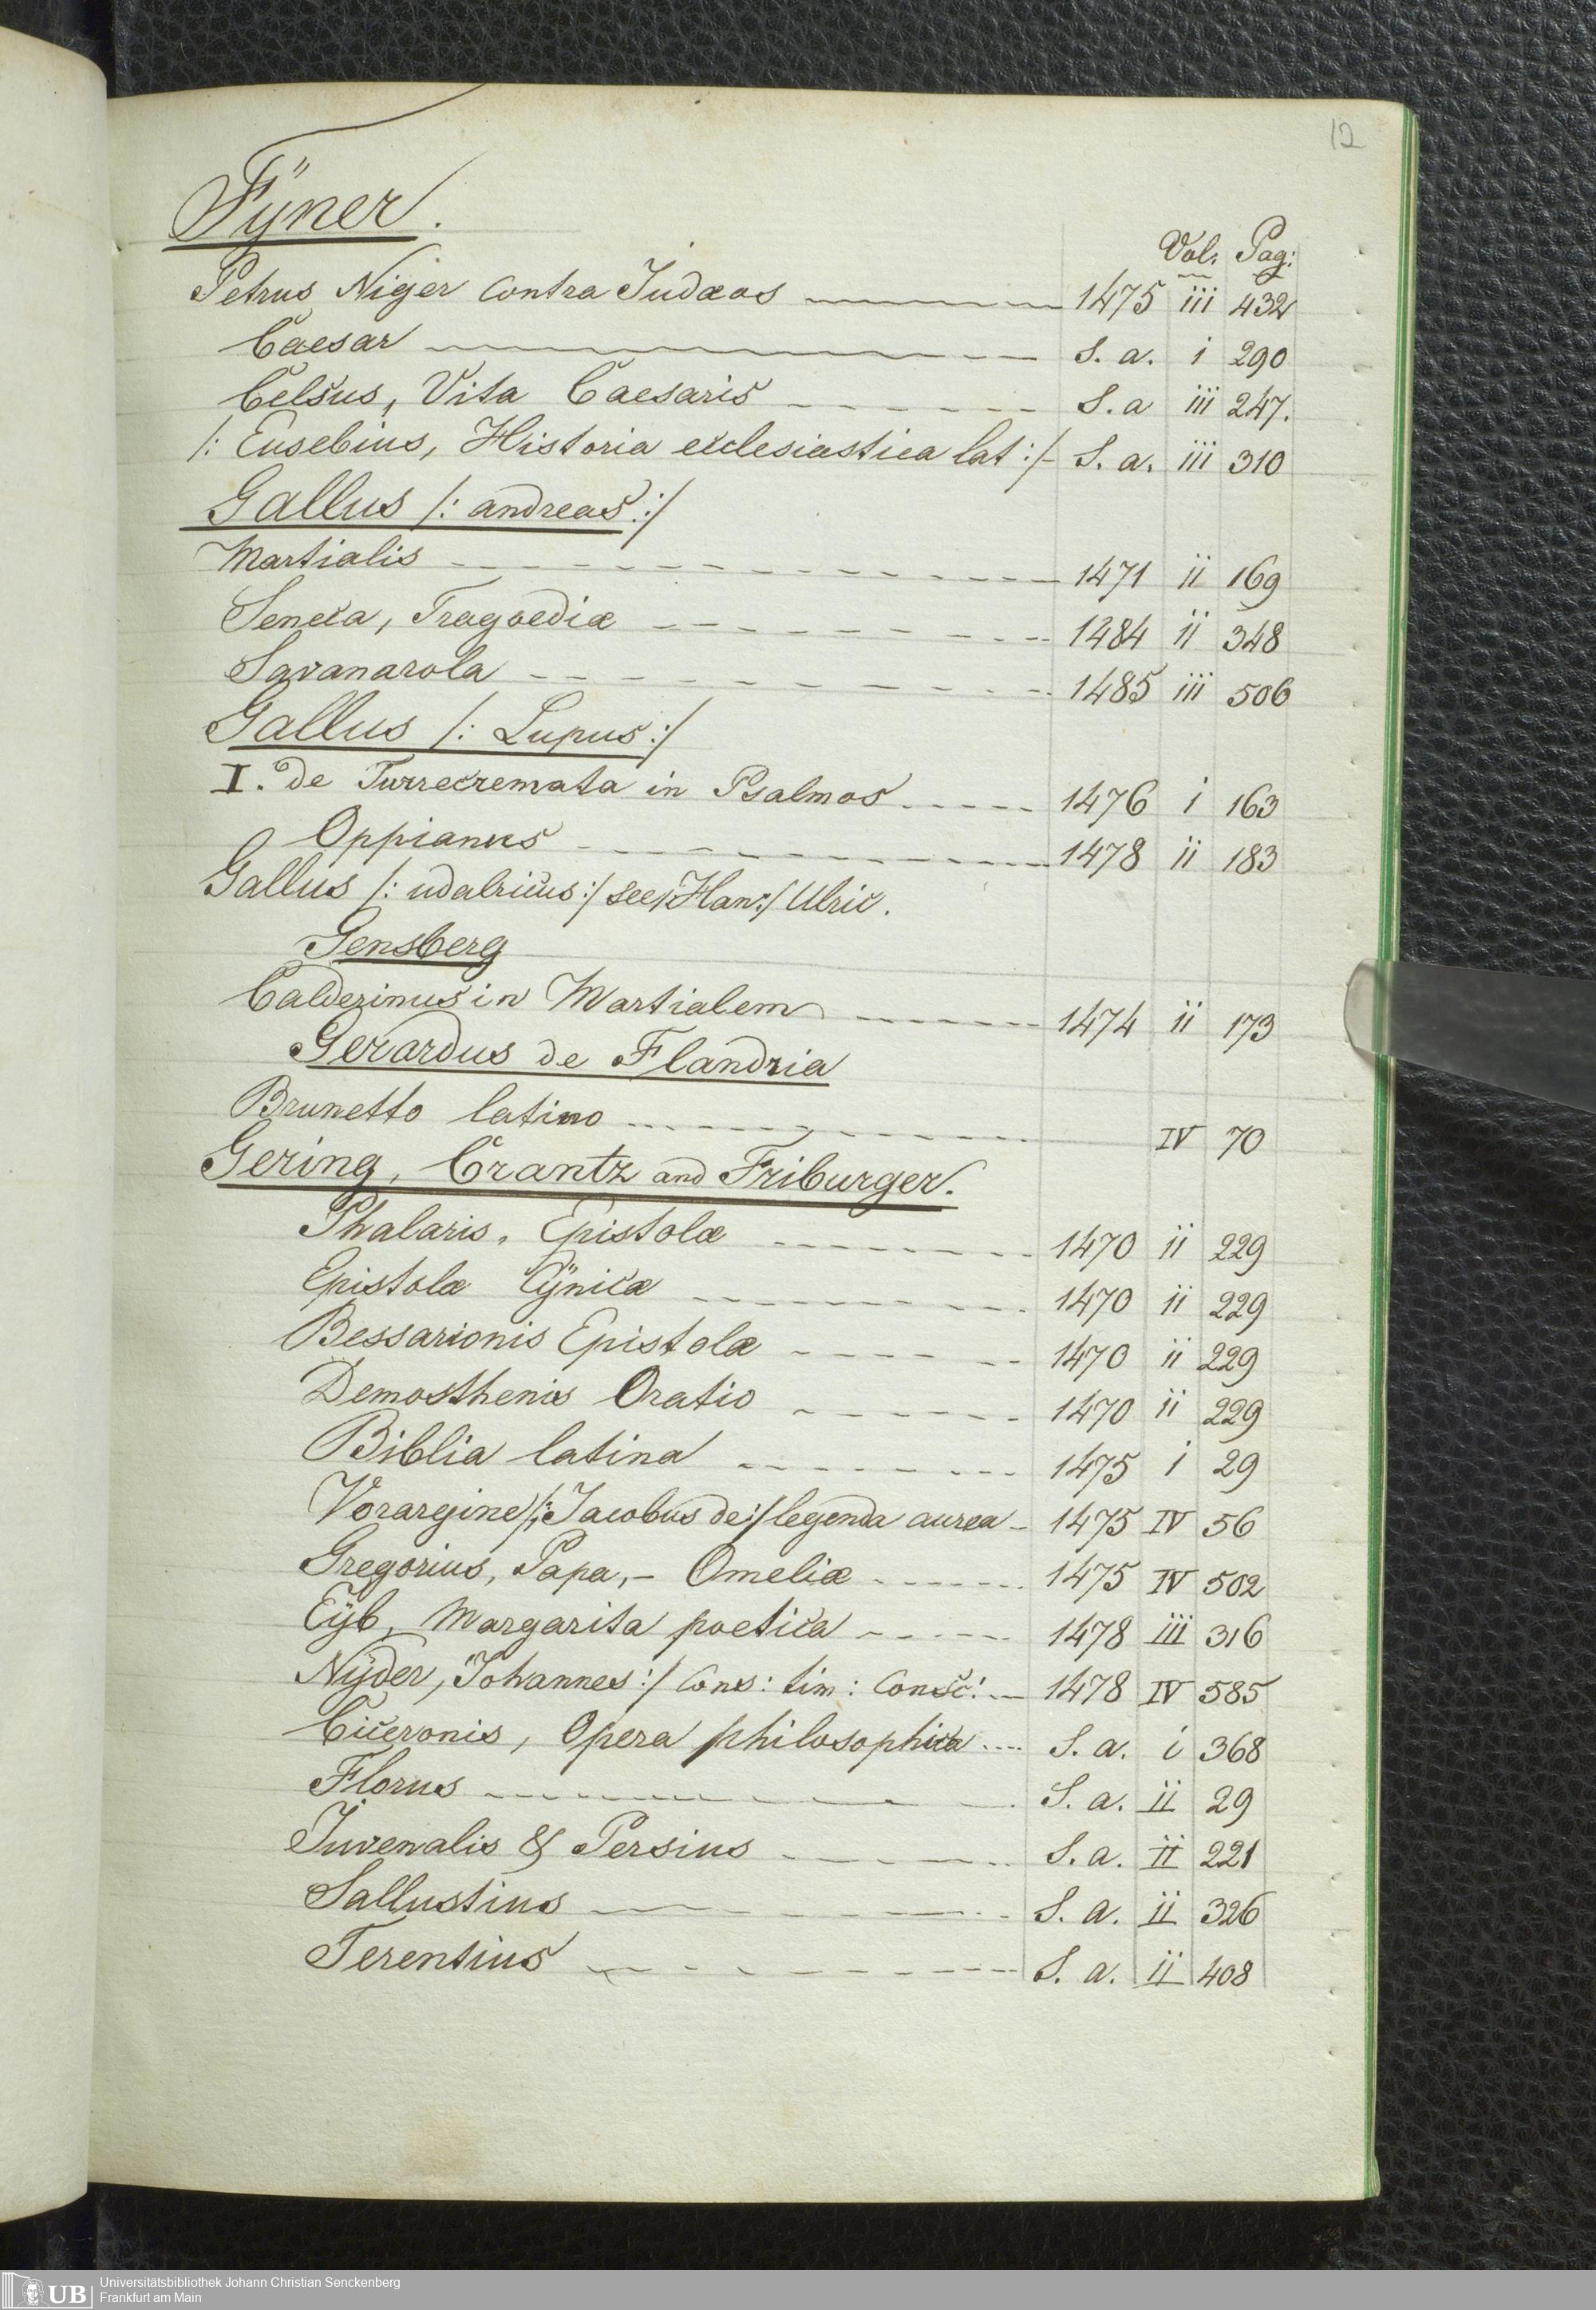 12
Fÿner.
Vol. Pag:
Petrus Niger contra Judæos 1475 iii 432
Caesar S. a. i 290
Celsus, Vita Caesaris S. a iii 247.
/: Eusebius, Historia ecclesiastica lat :/ S. a. iii 310
Gallus /: andreas :/
Martialis 1471 ii 169
Seneca, Tragoediæ 1484 ii 348
Savanarola 1485 iii 506
Gallus /: Lupus :/
I. de Turrecremata in Psalmos 1476 i 163
Oppianus 1478 ii 183
Gallus /: udalricus :/ see /: Han :/ Ulric.
Gensberg
Calderinus in Martialem 1474 ii 173
Gerardus de Flandria
Brunetto latino IV 70
Gering, Crantz and Friburger.
Phalaris, Epistolæ 1470 ii 229
Epistolæ Cÿnicæ 1470 ii 229
Bessarionis Epistolæ 1470 ii 229
Demosthenis Oratio 1470 ii 229
Biblia latina 1475 i 29
Vorargine /: Jacobus de :/ legenda aurea 1475 IV 56
Gregorius, Papa, - Omeliæ 1475 IV 502
Eÿb, Margarita poetica 1478 iii 316
Nÿder, Johannes :/ Cons: tim: Consc: 1478 IV 585
Ciceronis, Opera philosophica S. a. i 368
Florus S. a. ii 29
Juvenalis & Persius S. a. ii 221
Sallustius S. a. ii 326
Terentius S. a. ii 408
UB Universitätsbibliothek Johann Christian Senckenberg
Frankfurt am Main